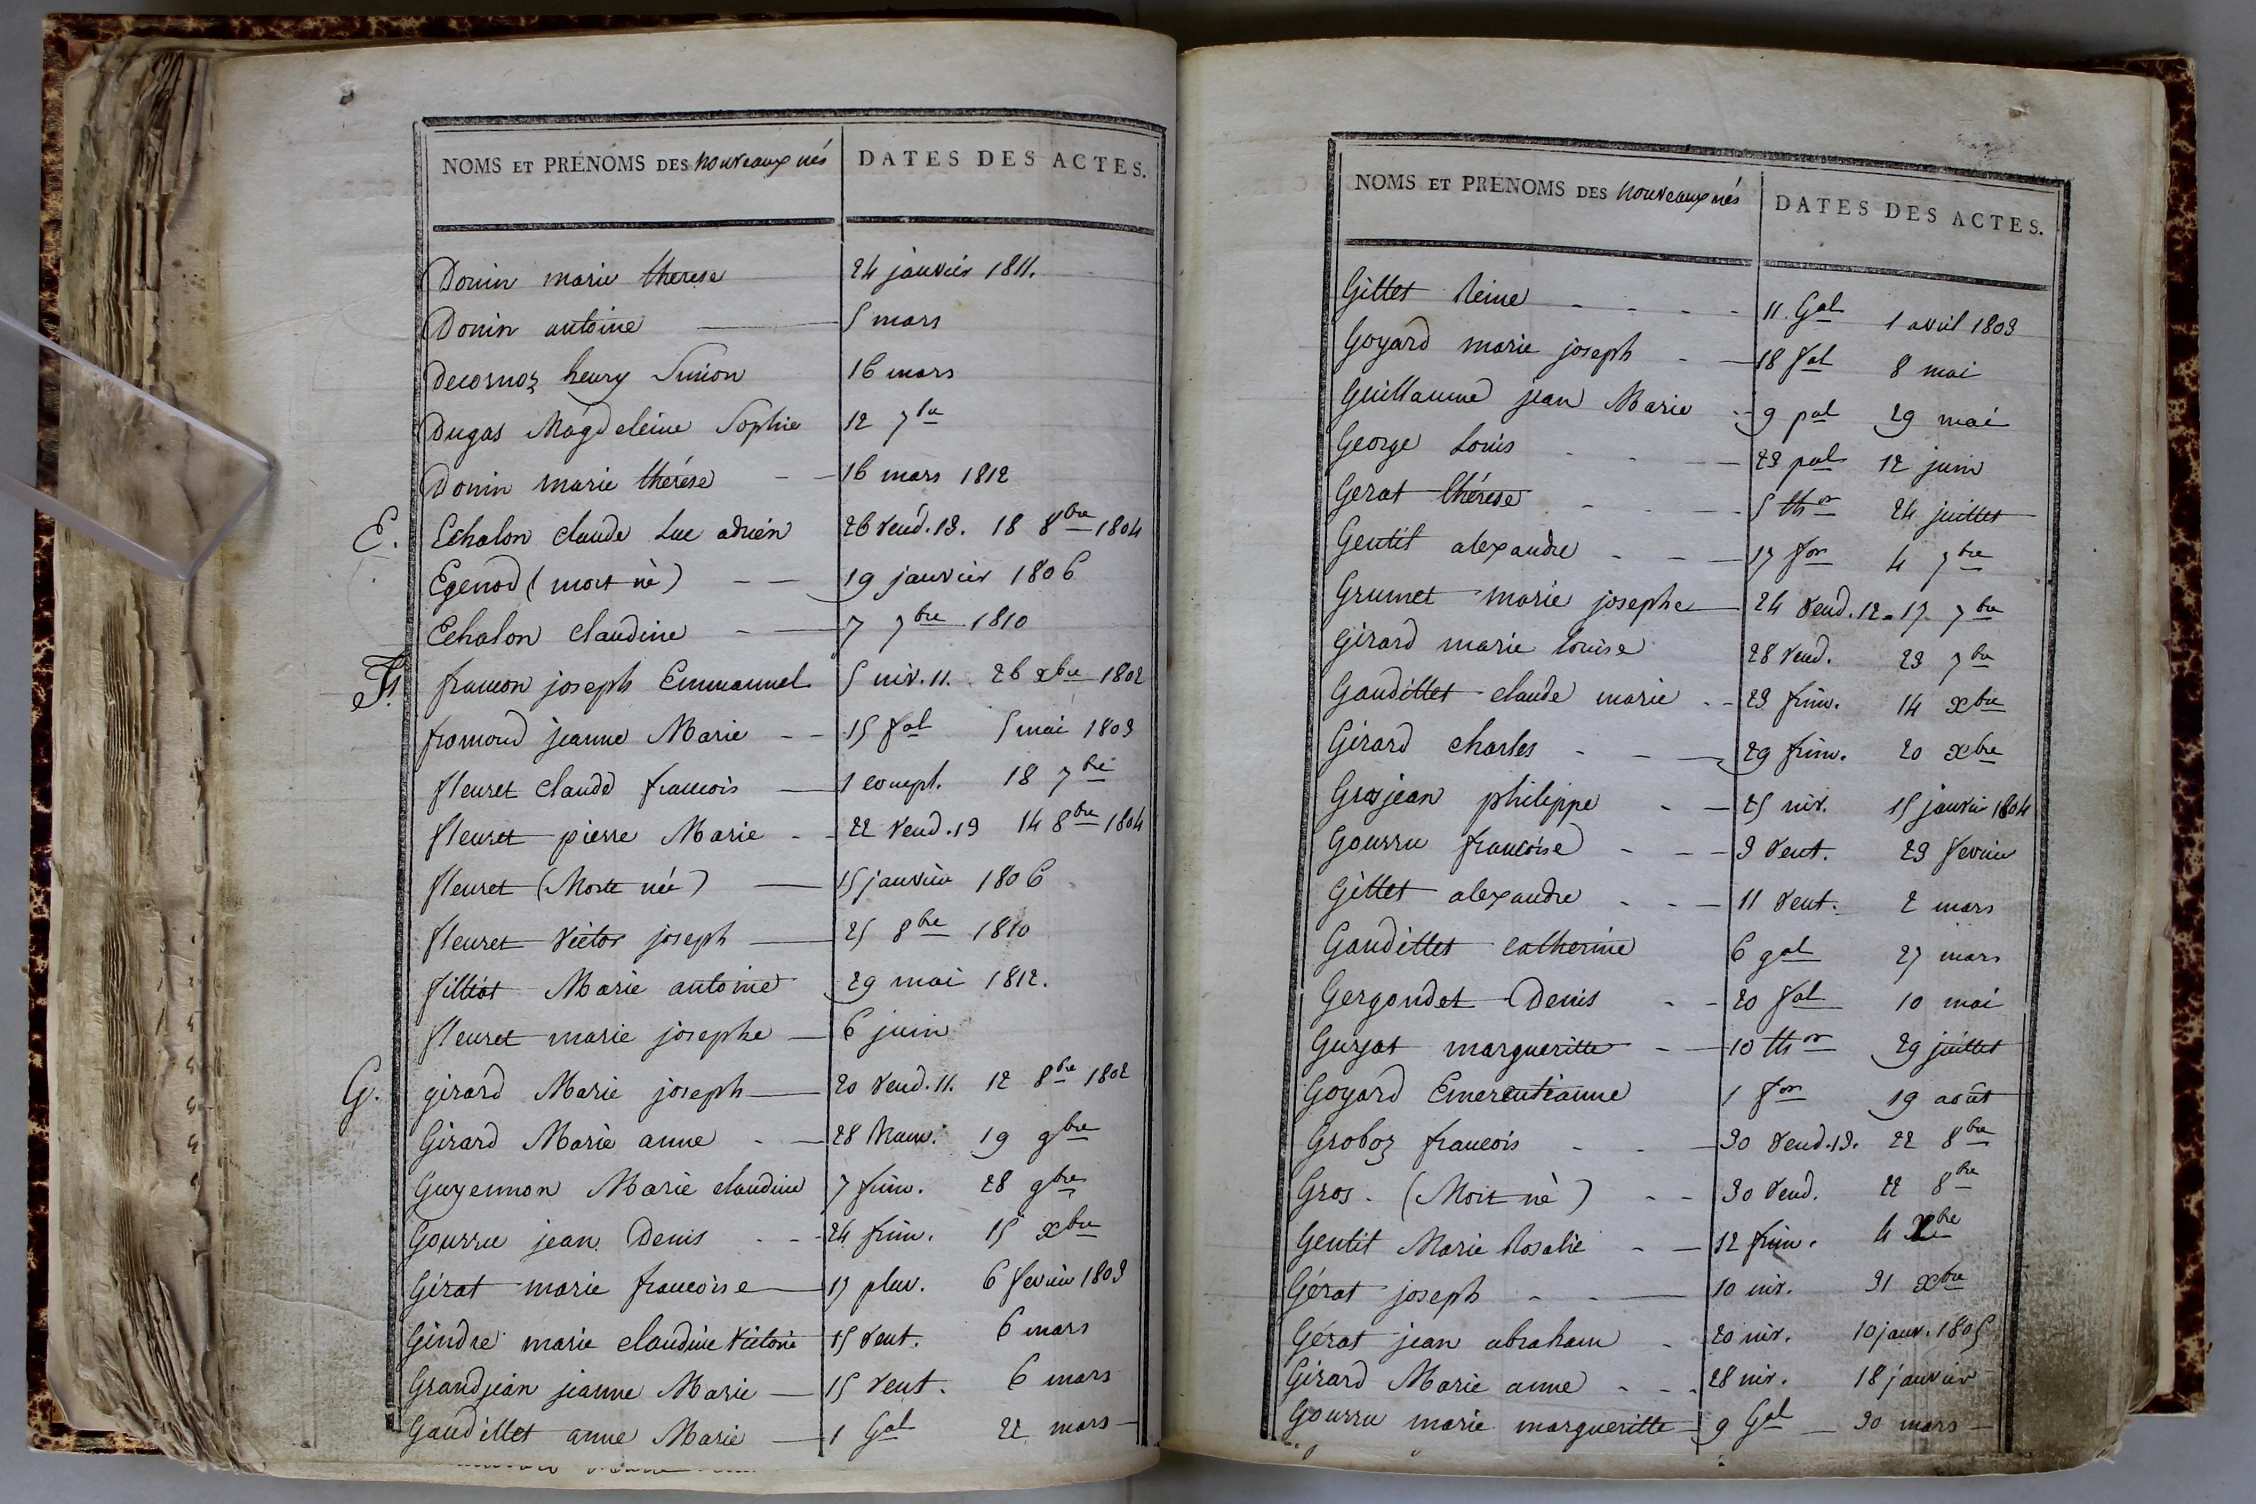 NOMS ET PRÉNOMS DES nouveaux nés DATES DES ACTES.
Donin marie therese 24 janvier 1811.
Donin antoine 5 mars
Decosnoz henry Simon 16 mars
Dugas Magdeleine Sophie 12 7bre
Donin marie thérése 16 mars 1812
E. Echalon claude Luc adrien 26 vend. 13. 18 8bre 1804
Egenod (mort né) 19 janvier 1806
Echalon claudine 7 7bre 1810
F. framon joseph Emmanuel 5 niv. 11. 26 xbre 1802
fromond jeanne Marie 15 fal 5 mai 1803
fleuret claude francois 1 compl. 18 7bre
fleuret pierre Marie 22 vend. 13 14 8bre 1804
fleuret (Morte née) 15 janvier 1806
fleuret victor joseph 25 8bre 1810
filliot Marie antoine 29 mai 1812.
fleuret marie josephe 6 juin
G. girard Marie joseph 20 vend. 11. 12 8bre 1802
Girard Marie anne 28 brum. 19 9bre
Guyennon Marie claudine 7 frim. 28 9bre
Gourru jean Denis 24 frim. 15 xbre
Gérat marie francoise 17 pluv. 6 fevrier 1803
Gindre marie claudine victoire 15 vent. 6 mars
Grandjean jeanne Marie 15 vent. 6 mars
Gaudillet anne Marie 1 Gal 22 mars
NOMS ET PRÉNOMS DES nouveaux nés DATES DES ACTES.
Gillet Reine 11 Gal 1 avril 1803
Goyard marie joseph 18 fal 8 mai
Guillaume jean Marie 9 pal 29 mai
George Louis 23 pal 12 juin
Gerat thérese 5 thor 24 juillet
Gentit alexandre 17 for 4 7bre
Grumet marie josephe 24 vend. 12. 17 7bre
Girard marie louise 28 vend. 23 7bre
Gaudillet claude marie 23 frim. 14 xbre
Girard charles 29 frim. 20 xbre
Grosjean philippe 25 niv. 15 janvier 1804
Gourru francoise 3 vent. 23 fevrier
Gillet alexandre 11 vent. 2 mars
Gaudillet catherine 6 gal 27 mars
Gergondet Denis 20 fal 10 mai
Guyat margueritte 10 thor 29 juillet
Goyard Emerentianne 1 for 19 août
Groboz francois 30 vend. 13. 22 8bre
Gros. (Mort né) 30 vend. 22 8bre
Gentit Marie Rosalie 12 frim. 4 xbre
Gérat joseph 10 niv. 31 xbre
Gérat jean abraham 20 niv. 10 janv. 1805
Girard Marie anne 28 niv. 18 janvier
Gourru marie margueritte 9 Gal 30 mars